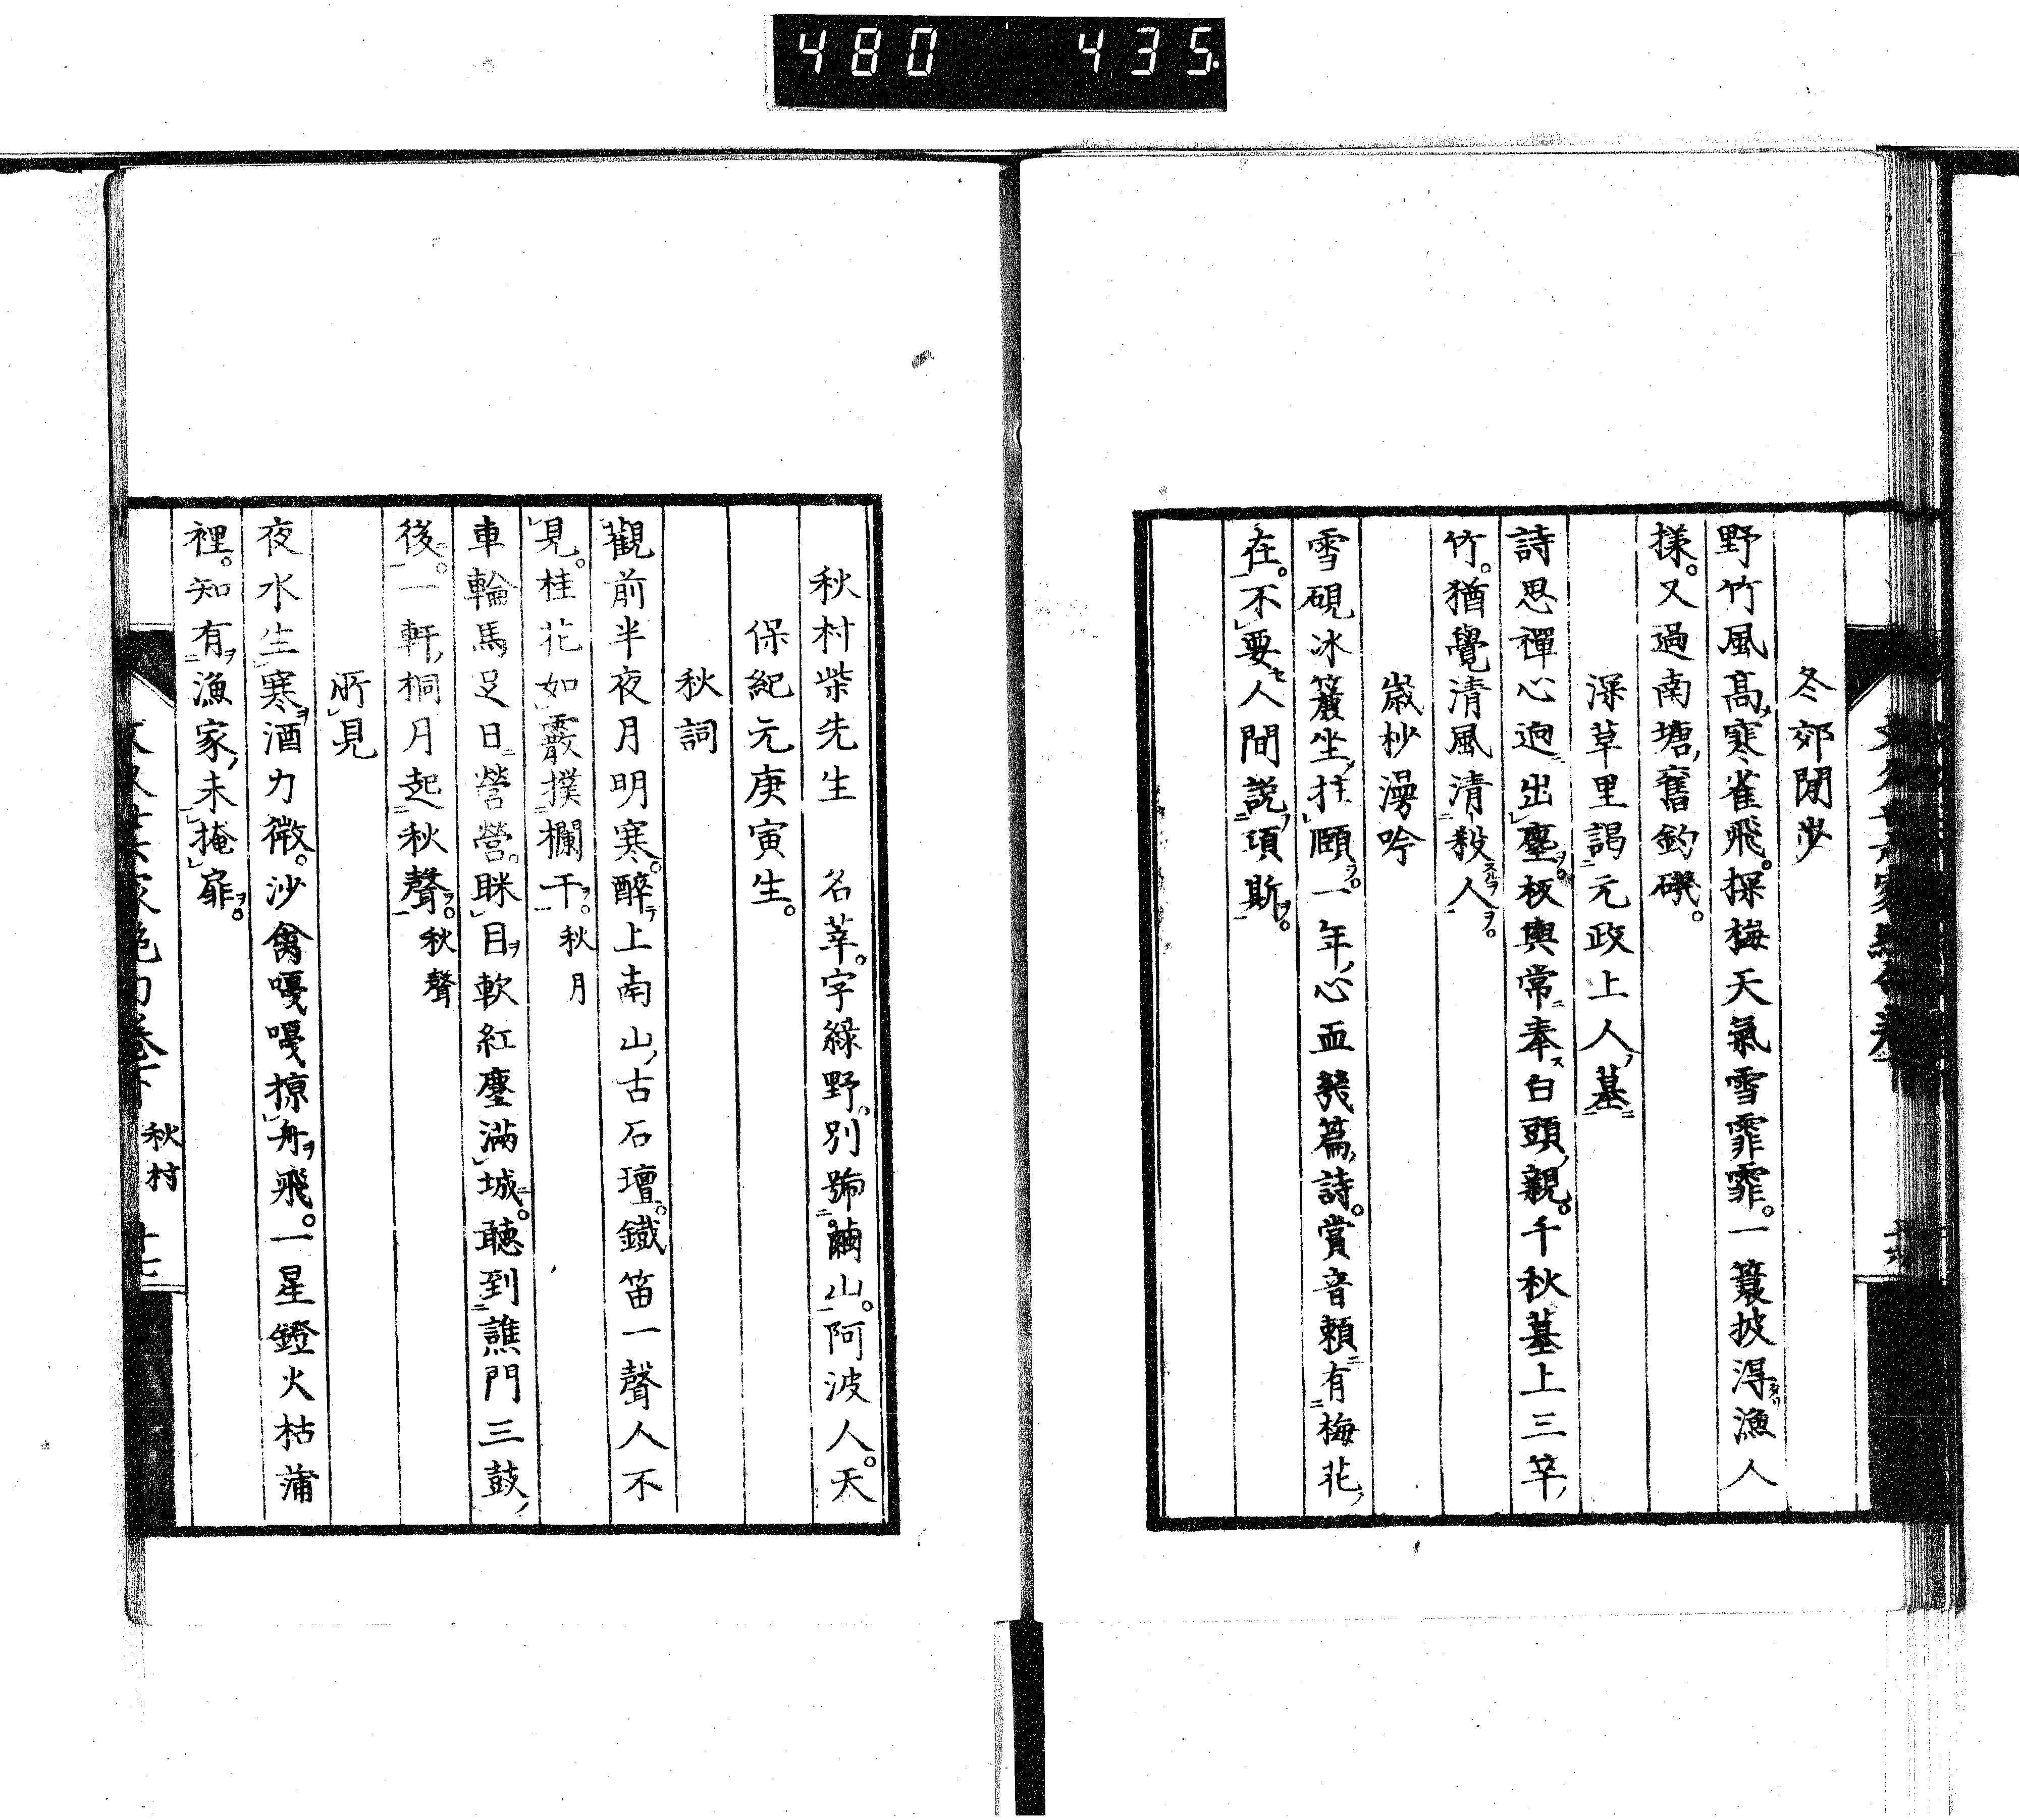 480 435.
冬郊閒步
野竹風高寒雀飛。探梅天氣雪霏霏。一簑披得漁人
様。又過南塘舊釣磯。
深草里謁元政上人墓
詩思禪心迥出塵。板輿常奉白頭親。千秋墓上三竿
竹。猶覺清風清殺人。
歳杪漫吟
雪硯冰簷坐拄頤。一年心血幾篇詩。賞音賴有梅花
在。不要人間說項斯。
秋村柴先生 名莘。字緑野。別號繭山。阿波人。天
保紀元庚寅生。
秋詞
觀前半夜月明寒。醉上南山古石壇。鐵笛一聲人不
見。桂花如霰撲欄干。秋月
車輪馬足日營營。眯目軟紅塵滿城。聽到譙門三鼓
後。一軒桐月起秋聲。秋聲
所見
夜水生寒酒力微。沙禽嘎嘎掠舟飛。一星鐙火枯蒲
裡。知有漁家未掩扉。
秋村